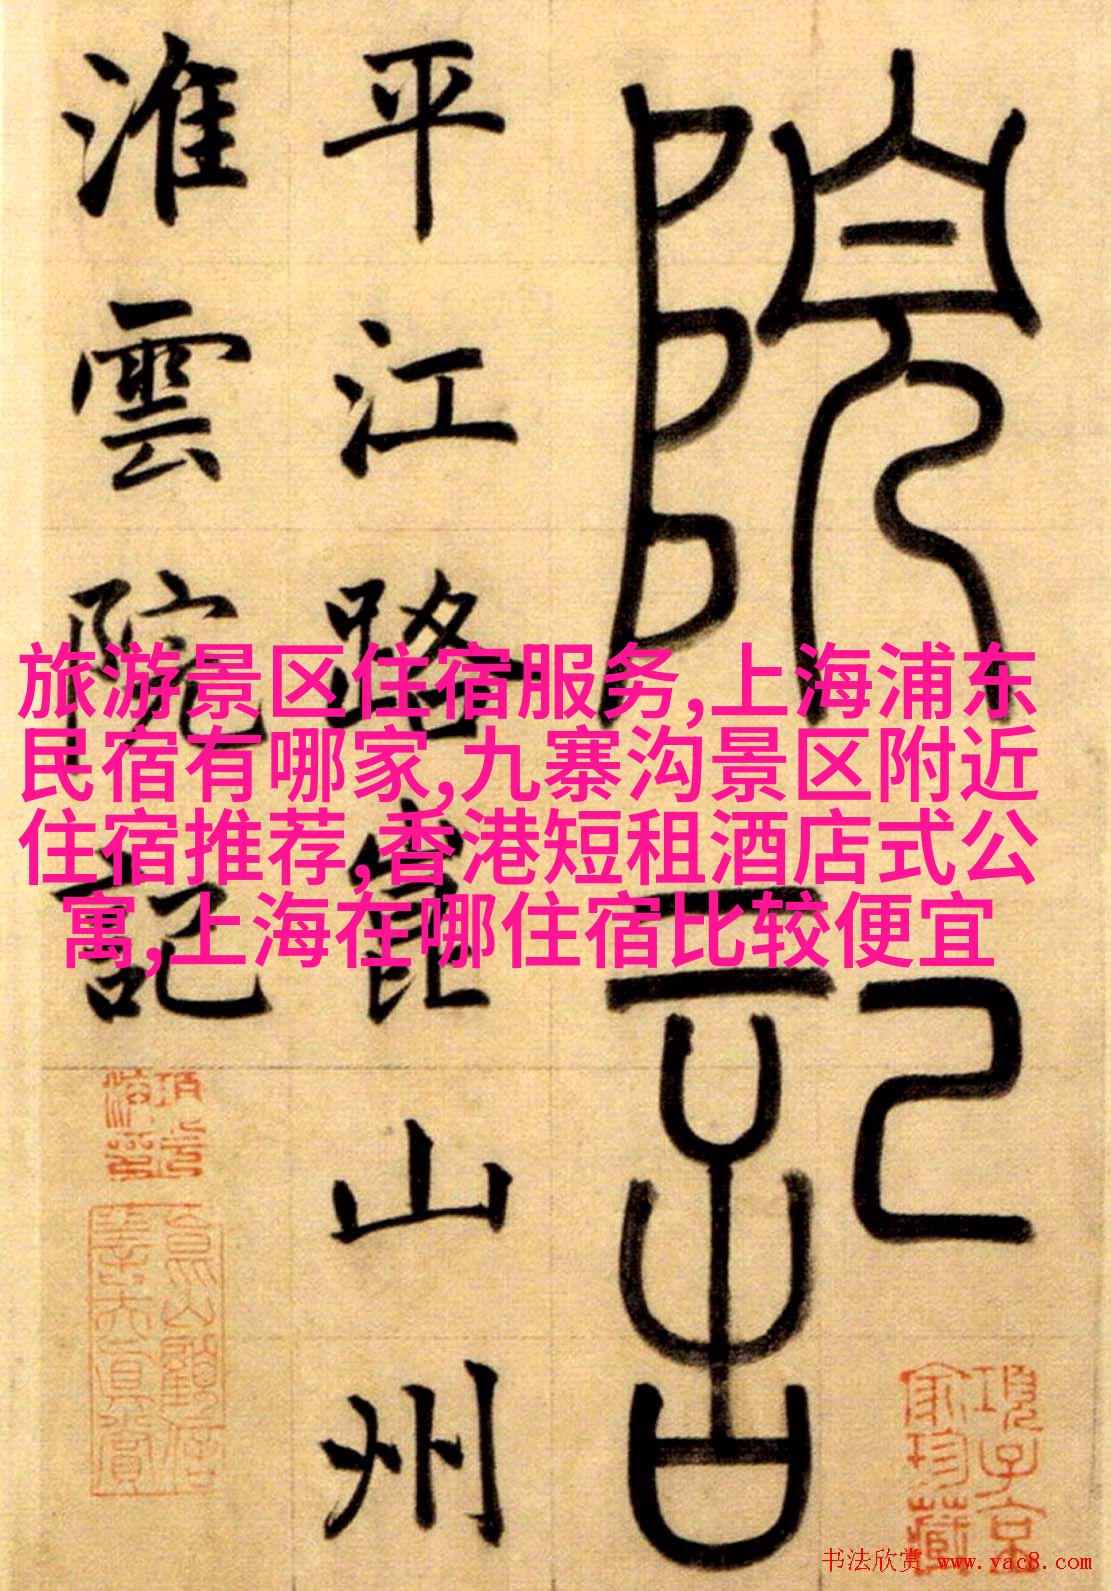 院記
平江路崑山州
淮雲院記
旅游景区住宿服务,上海浦东
民宿有哪家,九寨沟景区附近
住宿推荐,香港短租酒店式公
寓,上海在哪住宿比较便宜
項子京
家珍藏
书法欣赏 www.yac8.com